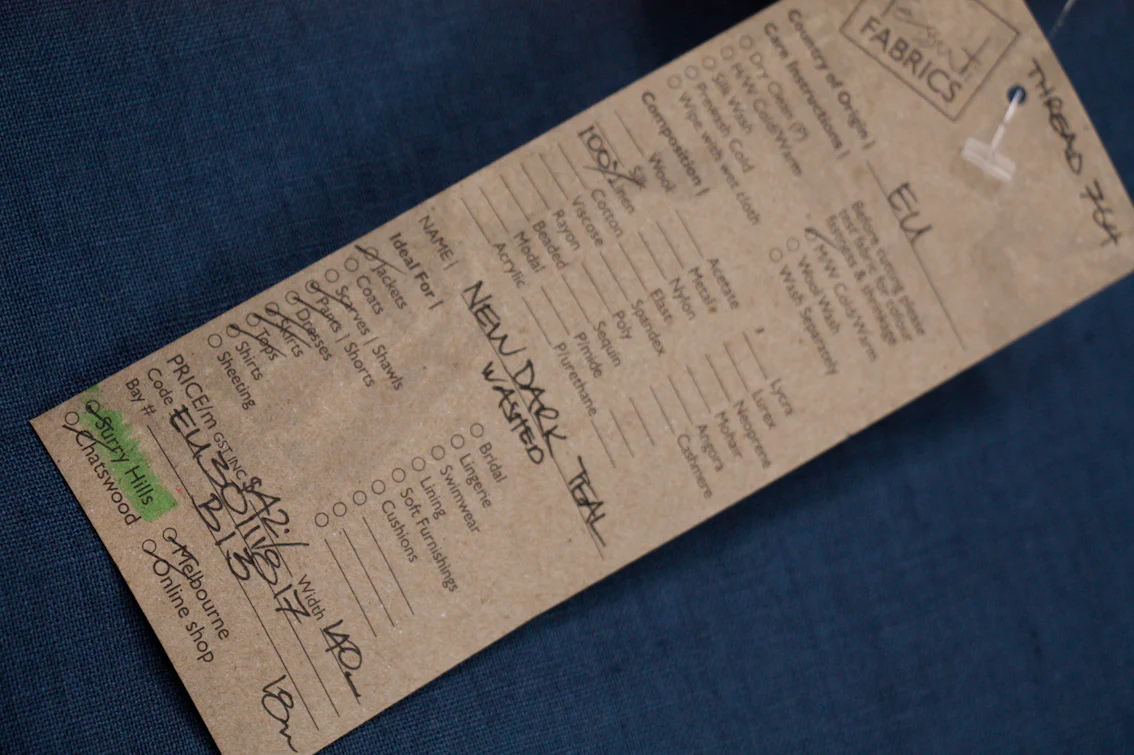 THREAD 744
FABRICS
Country of Origin | EU
Care Instructions | Before cutting please test fabric for colour fastness & shrinkage
Dry Clean (P)
H/W Cold/Warm
Silk Wash
Prewash Cold
Wipe with wet cloth
M/W Cold/Warm
Wool Wash
Wash Separately
Composition |
Wool
Silk
100% Linen
Cotton
Viscose
Rayon
Beaded
Modal
Acrylic
Acetate
Metal
Nylon
Elast.
Spandex
Poly
Sequin
P/imide
P/urethane
Lycra
Lurex
Neoprene
Mohair
Angora
Cashmere
NAME | NEW DARK TEAL
WASHED
Ideal For |
Jackets
Coats
Scarves | Shawls
Pants | Shorts
Dresses
Skirts
Tops
Shirts
Sheeting
Bridal
Lingerie
Swimwear
Lining
Soft Furnishings
Cushions
PRICE/m GST INC $42.- Width 140
Code
Bay # B13
Surry Hills
Chatswood
Melbourne
Online shop
18m